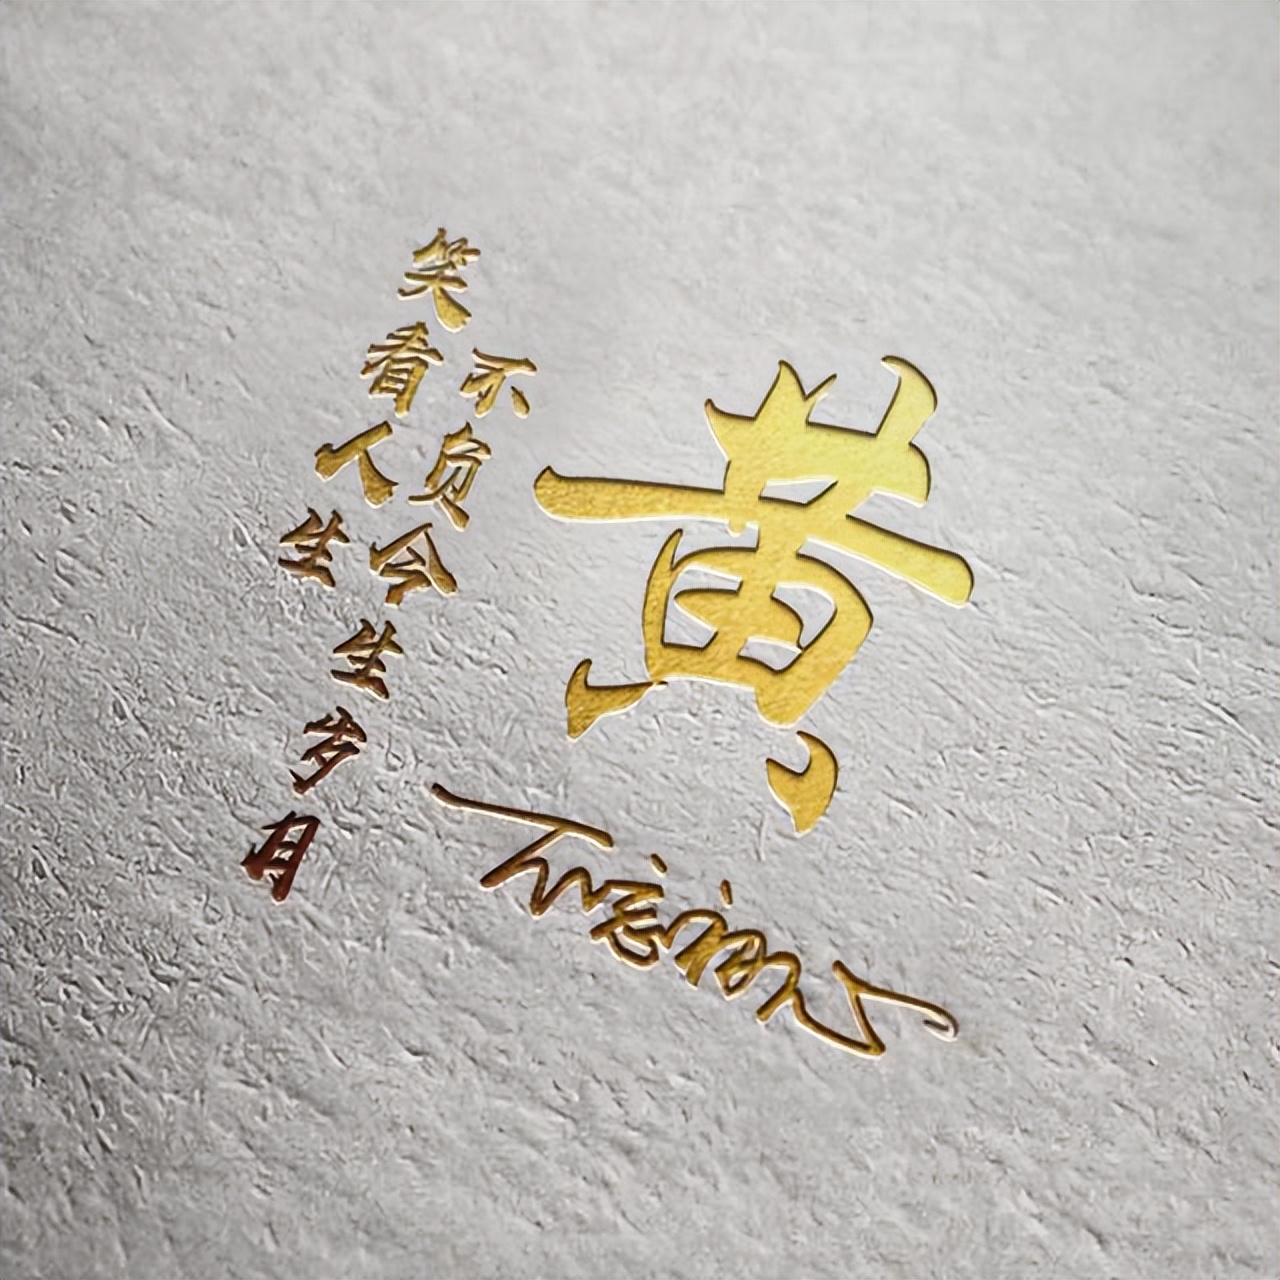 黄
不负今生岁月
笑看人生